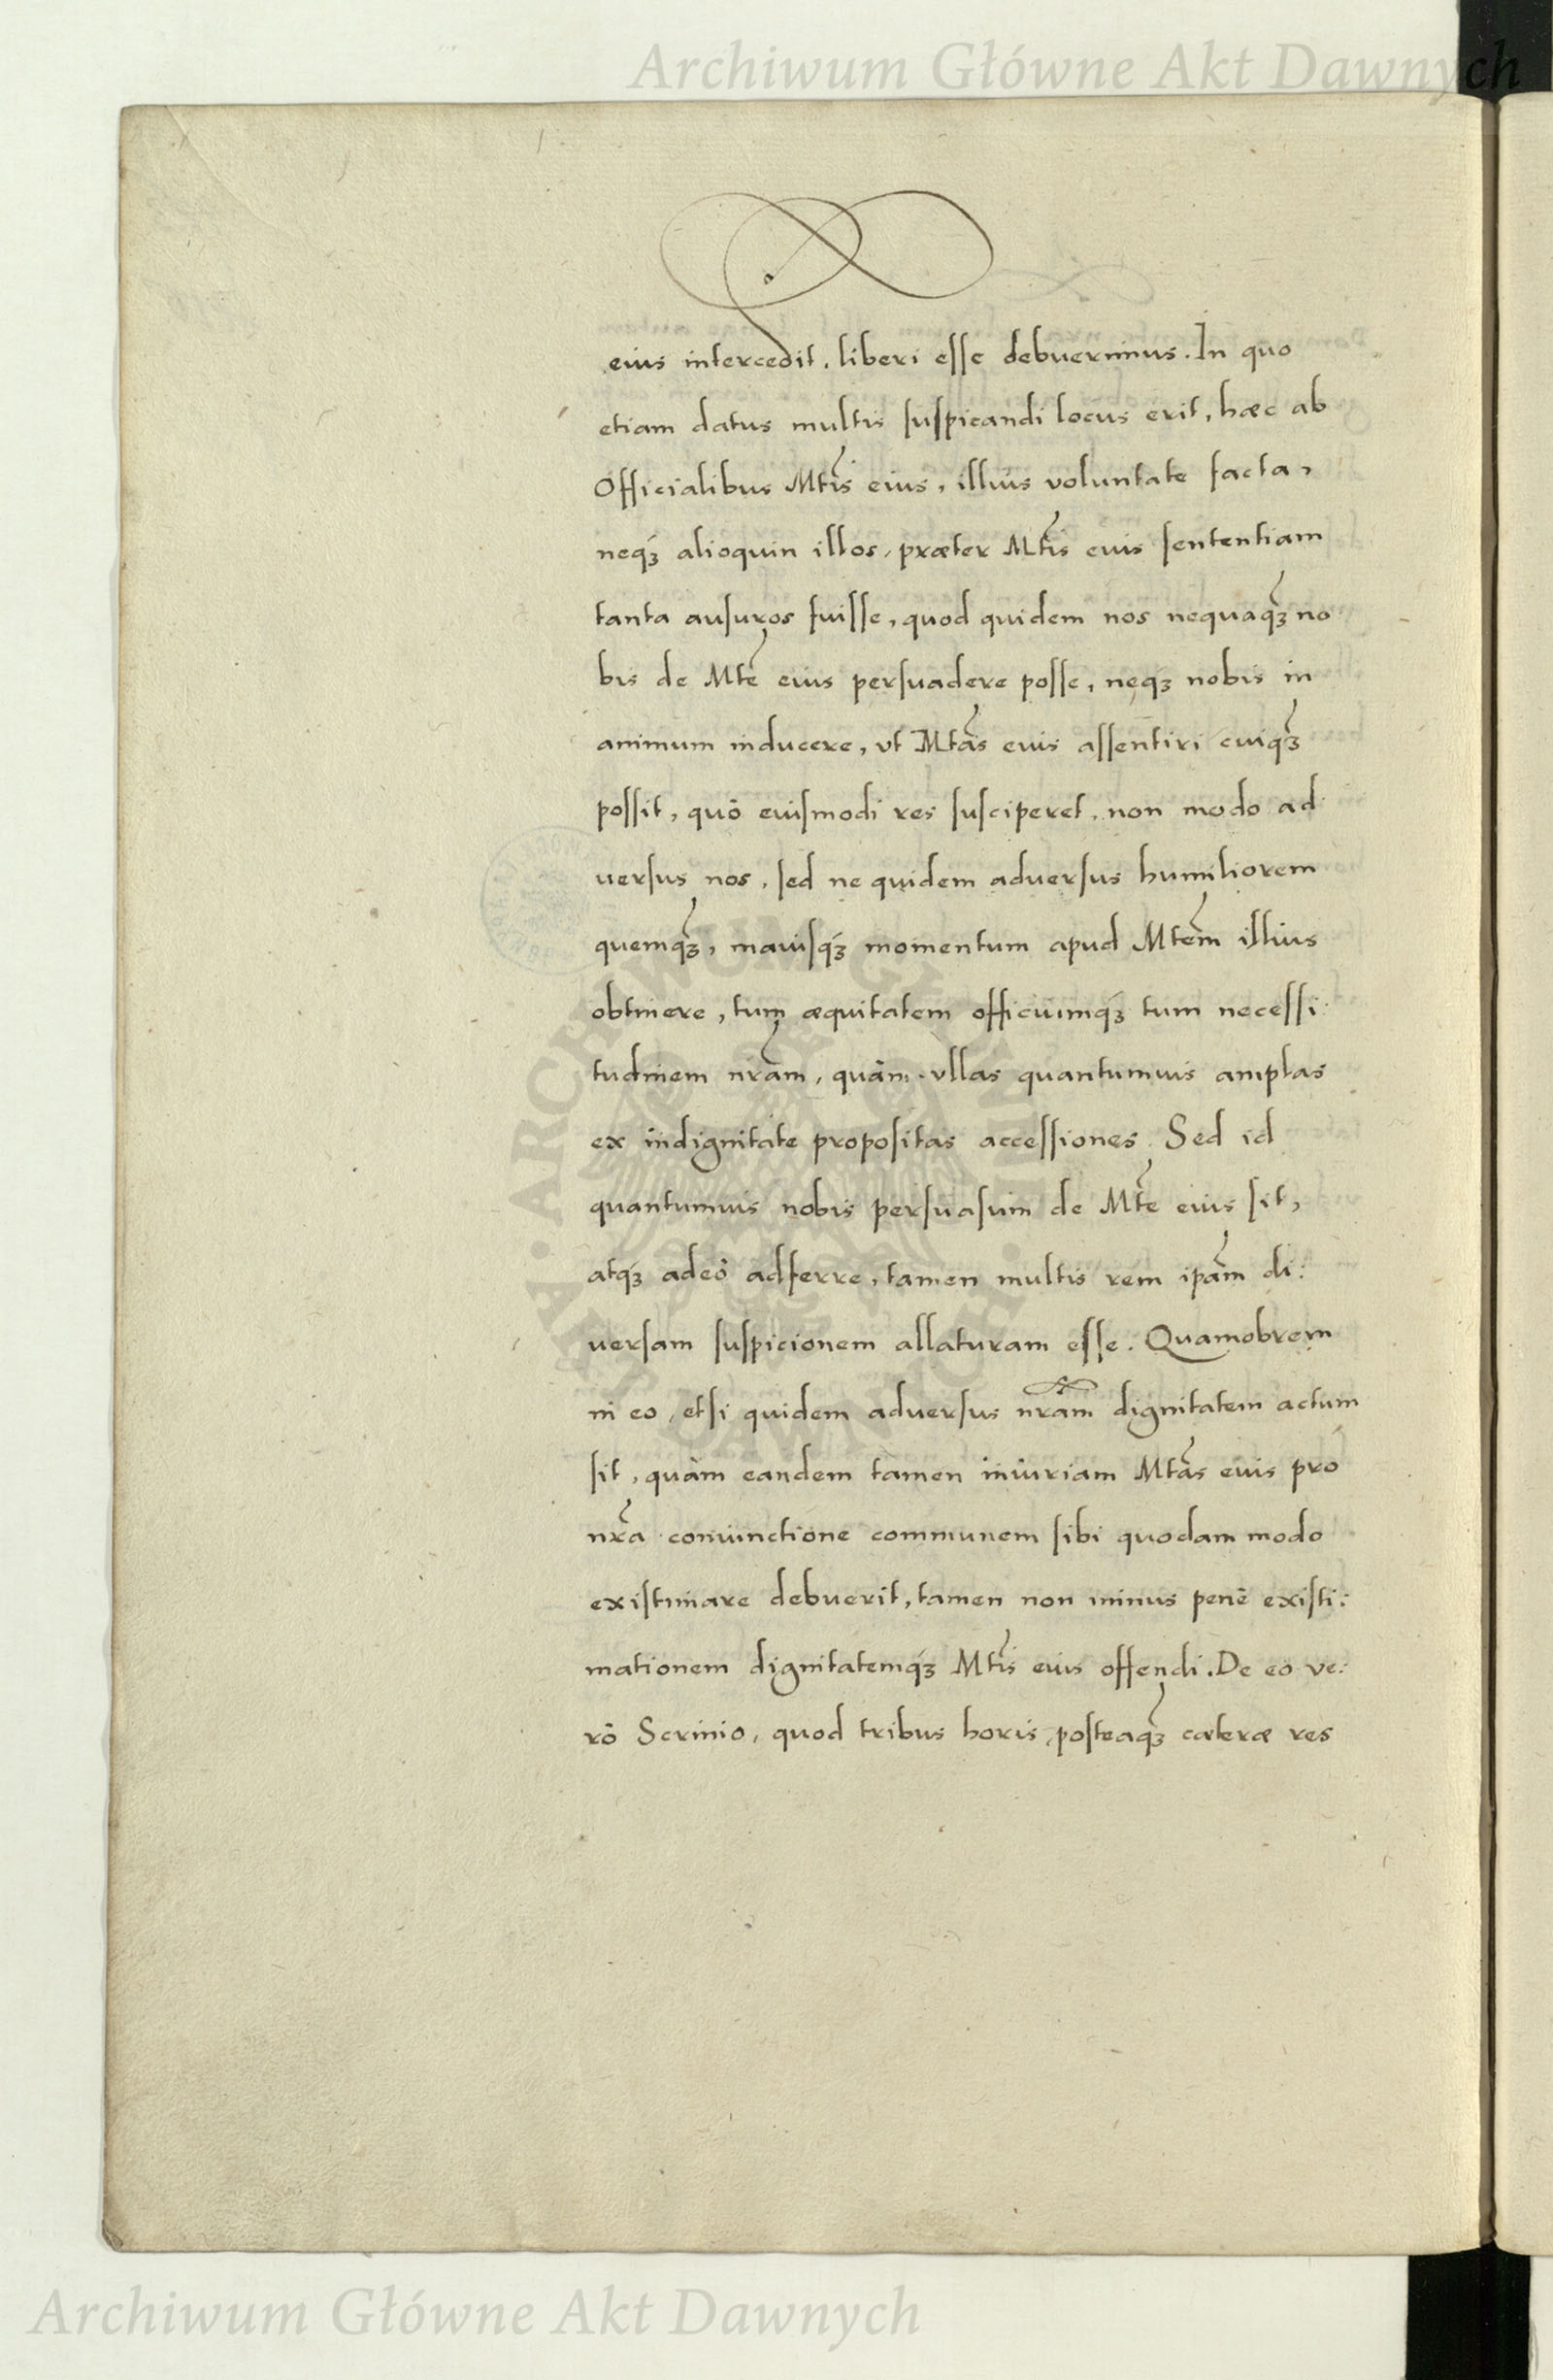 Archiwum Główne Akt Dawnych
eius intercedit, liberi esse debuerimus. In quo
etiam datus multis suspicandi locus erit, hæc ab
Officialibus Mtis eius, illius voluntate facta,
neqʒ alioquin illos, præter Mtis eius sententiam
tanta ausuros fuisse, quod quidem nos nequaqʒ no
bis de Mte eius persuadere posse, neqʒ nobis in
animum inducere, vt Mtas eius assentiri cuiqʒ
possit, quô eiusmodi res susciperet, non modo ad
uersus nos, sed ne quidem aduersus humiliorem
quemqʒ, maiusqʒ momentum apud Mtem illius
obtinere, tum æquitatem officiumqʒ tum necessi:
tudinem nram, quâm vllas quantumuis amplas
ex indignitate propositas accessiones. Sed id
quantumuis nobis persuasum de Mte eius sit,
atqʒ adeô adferre, tamen multis rem ipam di:
uersam suspicionem allaturam esse. Quamobrem
in eo, etsi quidem aduersus nram dignitatem actum
sit, quàm eandem tamen iniuriam Mtas eius pro
nra coniunctione communem sibi quodam modo
existimare debuerit, tamen non minus penè existi:
mationem dignitatemqʒ Mtis eius offendi. De eo ve:
rô Scrinio, quod tribus horis, posteaqʒ cæteræ res
Archiwum Główne Akt Dawnych